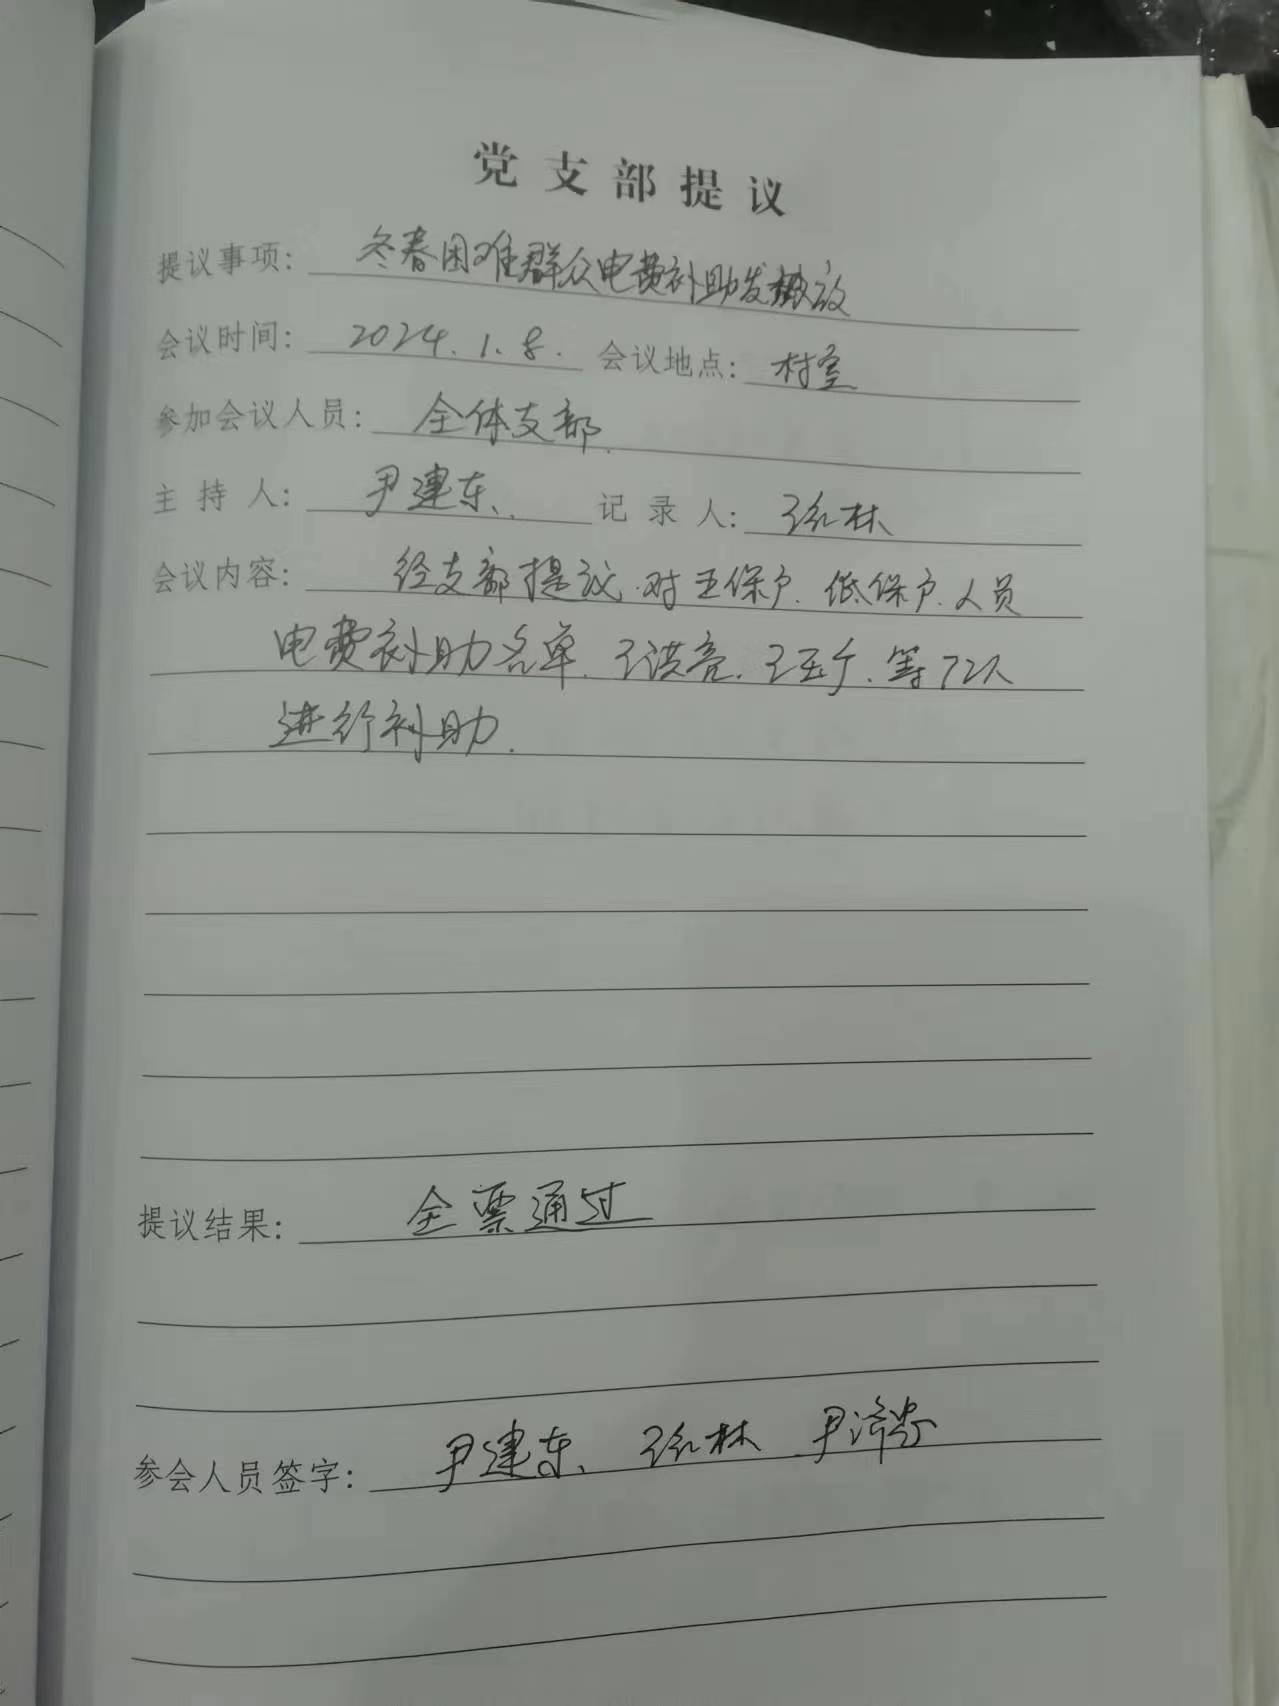 党支部提议
提议事项: 冬春困难群众电费补助发放
会议时间: 2024.1.8. 会议地点: 村室
参加会议人员: 全体支部.
主持人: 尹建东、. 记录人: 张林
会议内容: 经支部提议.对五保户.低保户.人员
电费补助名单.王洪亮.王玉.等72人
进行补助.
提议结果: 全票通过
参会人员签字: 尹建东、张林 尹泽